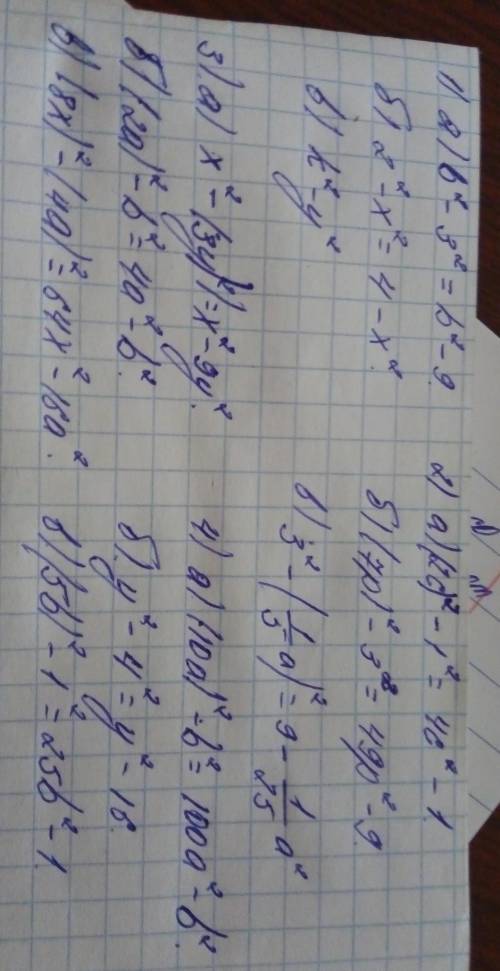 1) а) b² - 3² = b² - 9.
б) 2² - x² = 4 - x².
в) k² - y²
2) а) (2c)² - 1² = 4c² - 1.
б) (7p)² - 3² = 49p² - 9.
в) 3² - (1/5 a)² = 9 - 1/25 a²
3) а) x² - (3y)² = x² - 9y².
б) (2a)² - b² = 4a² - b².
в) (8x)² - (4a)² = 64x² - 16a².
4) а) (10a)² - b² = 100a² - b².
б) y² - 4² = y² - 16.
в) (5b)² - 1² = 25b² - 1.